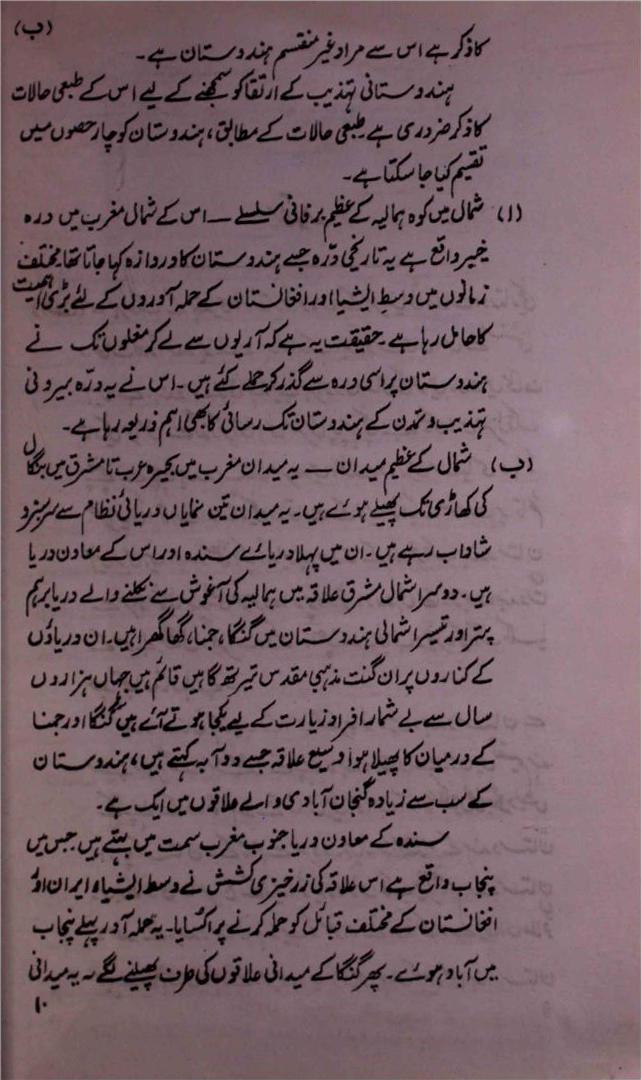 (ب)
کا ذکر ہے اس سے مراد غیر منقسم ہندوستان ہے۔
ہندوستانی تہذیب کے ارتقا کو سمجھنے کے لیے اس کے طبعی حالات
کا ذکر ضروری ہے۔ طبعی حالات کے مطابق، ہندوستان کو چار حصوں میں
تقسیم کیا جا سکتا ہے۔
(ا) شمال میں کوہ ہمالیہ کے عظیم برفانی سلسلے — اس کے شمال مغرب میں درہ
خیبر واقع ہے یہ تاریخی درّہ جسے ہندوستان کا دروازہ کہا جاتا تھا۔ مختلف
زمانوں میں وسط ایشیا اور افغانستان کے حملہ آوروں کے لئے بڑی اہمیت
کا حامل رہا ہے۔ حقیقت یہ ہے کہ آریوں سے لے کر مغلوں تک نے
ہندوستان پر اسی درہ سے گذر کر حملے کئے ہیں۔ اس نے یہ درّہ بیرونی
تہذیب و تمدن کے ہندوستان تک رسائی کا بھی اہم ذریعہ رہا ہے۔
(ب) شمال کے عظیم میدان — یہ میدان مغرب میں بحیرہ عرب تا مشرق میں بنگال
کی کھاڑی تک پھیلے ہوئے ہیں۔ یہ میدان تین نمایاں دریائی نظام سے سرسبز و
شاداب رہے ہیں۔ ان میں پہلا دریائے سندھ اور اس کے معاون دریا
ہیں۔ دوسرا شمال مشرق علاقہ میں ہمالیہ کی آغوش سے نکلنے والے دریا برہم
پتر اور تیسرا شمالی ہندوستان میں گنگا، جمنا، گھاگھرا ہیں۔ ان دریاؤں
کے کناروں پر ان گنت مذہبی مقدس تیرتھ گاہیں قائم ہیں جہاں ہزاروں
سال سے بے شمار افراد زیارت کے لیے یکجا ہوتے آئے ہیں گنگا اور جمنا
کے درمیان کا پھیلا ہوا وسیع علاقہ جسے دو آبہ کہتے ہیں، ہندوستان
کے سب سے زیادہ گنجان آبادی والے علاقوں میں ایک ہے۔
سندھ کے معاون دریا جنوب مغرب سمت میں بہتے ہیں جس میں
پنجاب واقع ہے اس علاقہ کی زرخیزی کشش نے وسط ایشیاء ایران اور
افغانستان کے مختلف قبائل کو حملہ کرنے پر اکسایا۔ یہ حملہ آور پہلے پنجاب
میں آباد ہوئے۔ پھر گنگا کے میدانی علاقوں کی طرف پھیلنے لگے۔ یہ میدانی
۱۰